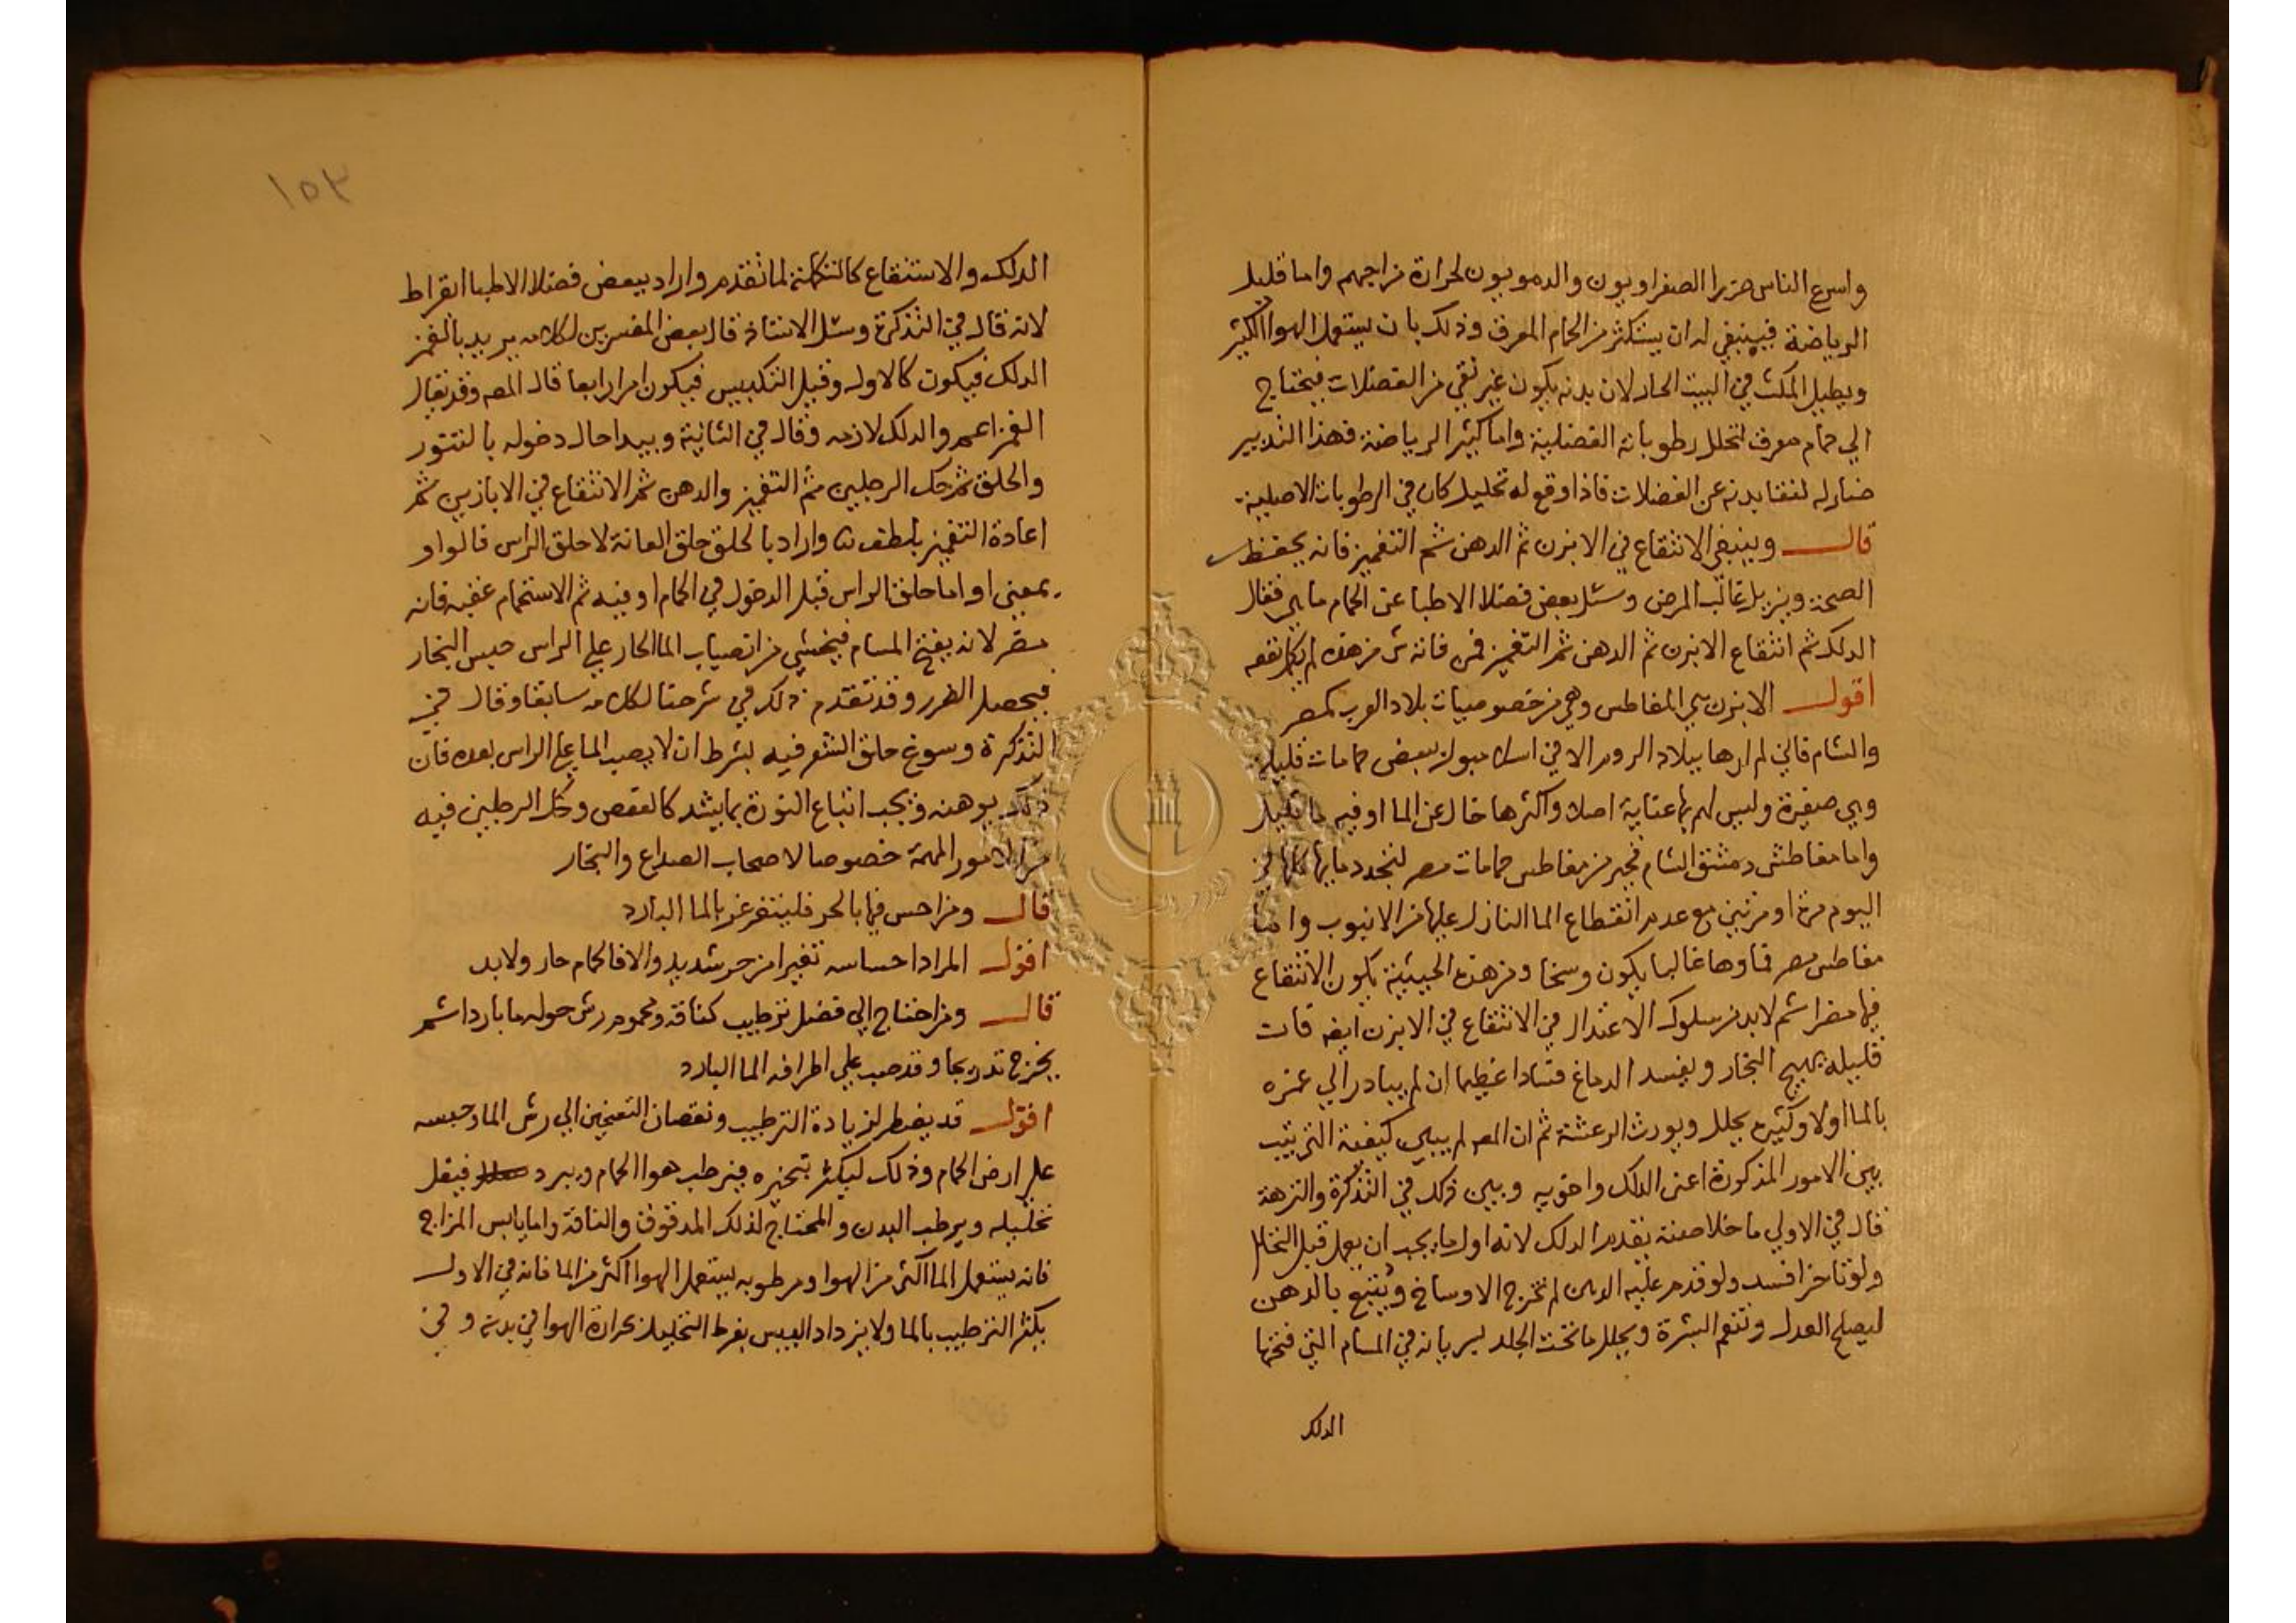 واسرع الناس ضررا الصفراويون والدمويون لحرارة مزاجهم واما قليل
الرياضة فينبغي له ان يستكثر من الحمام المعرق وذلك بان يستعمل الهوا الكثير
ويطيل المكث في البيت الحار لان بدنه يكون غير نقي من الفضلات فيحتاج
الي حمام معرق لتحلل رطوباته الفضلية واما كثير الرياضة فهذا التدبير
ضار له لنقا بدنه عن الفضلات فاذا وقع له تحليل كان في الرطوبات الاصلية
قال وينبغي الانتقاع في الابزن ثم الدهن ثم التغميز فانه يحفظ
الصحة ويزيل غالب المرض وسئل بعض فضلا الاطبا عن الحمام ما هي فقال
الدلك ثم انتقاع الابزن ثم الدهن ثم التغميز فمن فاته شي من هذه لم يكمل نفعه
اقول الابزن هي المغاطس وهي من خصوصيات بلاد العرب كمصر
والشام فاني لم ارها ببلاد الروم الا في اسلامبول ببعض حمامات قليلة
وهي صغيرة وليس لهم بها عناية اصلا واكثرها خال عن الما او فيه ما قليل
واما مغاطش دمشق الشام فخير من مغاطس حمامات مصر لتجدد مايها كلها في
اليوم مرة او مرتين مع عدم انقطاع الما النازل عليها من الانبوب واما
مغاطس مصر فماوها غالبا يكون وسخا ومن هذه الحيثية يكون الانتقاع
فيها مضرا ثم لابد من سلوك الاعتدال في الانتقاع في الابزن ايضه فان
قليله يهيج البخار ويفسد الدماغ فسادا عظيما ان لم يبادر الي غمزه
بالما اولا وكثيره يحلل ويورث الرعشة ثم ان المصه لم يبين كيفية الترتيب
بين الامور المذكورة اعني الدلك واخويه وبين ذلك في التذكرة والنزهة
قال في الاولي ما خلاصته يقدم الدلك لانه اول ما يجب ان يعمل قبل التحلل
ولو تاخر افسد ولو قدم عليه الدهن لم تخرج الاوساخ ويتبع بالدهن
ليصلح العدل وتنعم البشرة ويحلل ما تحت الجلد لسريانه في المسام التي فتحها
الدلك
١٥٣
الدلك والاستنقاع كالتكملة لما تقدم واراد ببعض فضلا الاطبا ابقراط
لانه قال في التذكرة وسئل الاستاذ قال بعض المفسرين لكلامه يريد بالغمز
الدلك فيكون كالاول وقيل التكبيس فيكون امرا رابعا قال المصه وقد يقال
الغمز اعم والدلك لازمه وقال في الثانية ويبدا حال دخوله بالتنور
والحلق ثم حك الرجلين ثم التغميز والدهن ثم الانتقاع في الابازين ثم
اعادة التغميز بلطف واراد بالحلق حلق العانة لا حلق الراس فالواو
بمعني او اما حلق الراس قبل الدخول في الحمام او فيه ثم الاستحمام عقبه فانه
مضر لانه يفتح المسام فيخشي من انصباب الما الحار علي الراس حبس البخار
فيحصل الضرر وقد تقدم ذلك في شرحنا لكلامه سابقا وقال في
التذكرة وسوغ حلق الشعر فيه بشرط ان لا يصب الما علي الراس بعده فان
ذلك يوهنه ويجب اتباع النورة بما يشد كالعفص وحك الرجلين فيه
من الامور المهمة خصوصا لاصحاب الصداع والبخار
قال ومن احس فيها بالحر فليتغرغر بالما البارد
اقول المراد احساسه تغيرا من حر شديد والا فالحمام حار ولا بد
قال ومن احتاج الي فضل ترطيب كناقه ومحموم رش حوله ما باردا ثم
يخرج تدريجا وقد صب علي اطرافه الما البارد
اقول قد يضطر لزيادة الترطيب ونقصان التسخين الي رش الما وحبسه
علي ارض الحمام وذلك ليكثر تبخيره فيرطب هوا الحمام ويبرد فيقل
تحليله ويرطب البدن والمحتاج لذلك المدقوق والناقه واما يابس المزاج
فانه يستعمل الما اكثر من الهوا ومرطوبه يستعمل الهوا اكثر من الما فانه في الاول
يكثر الترطيب بالما ولا يزداد اليبس بفرط التحليل من حرارة الهوا في بدنه وفي